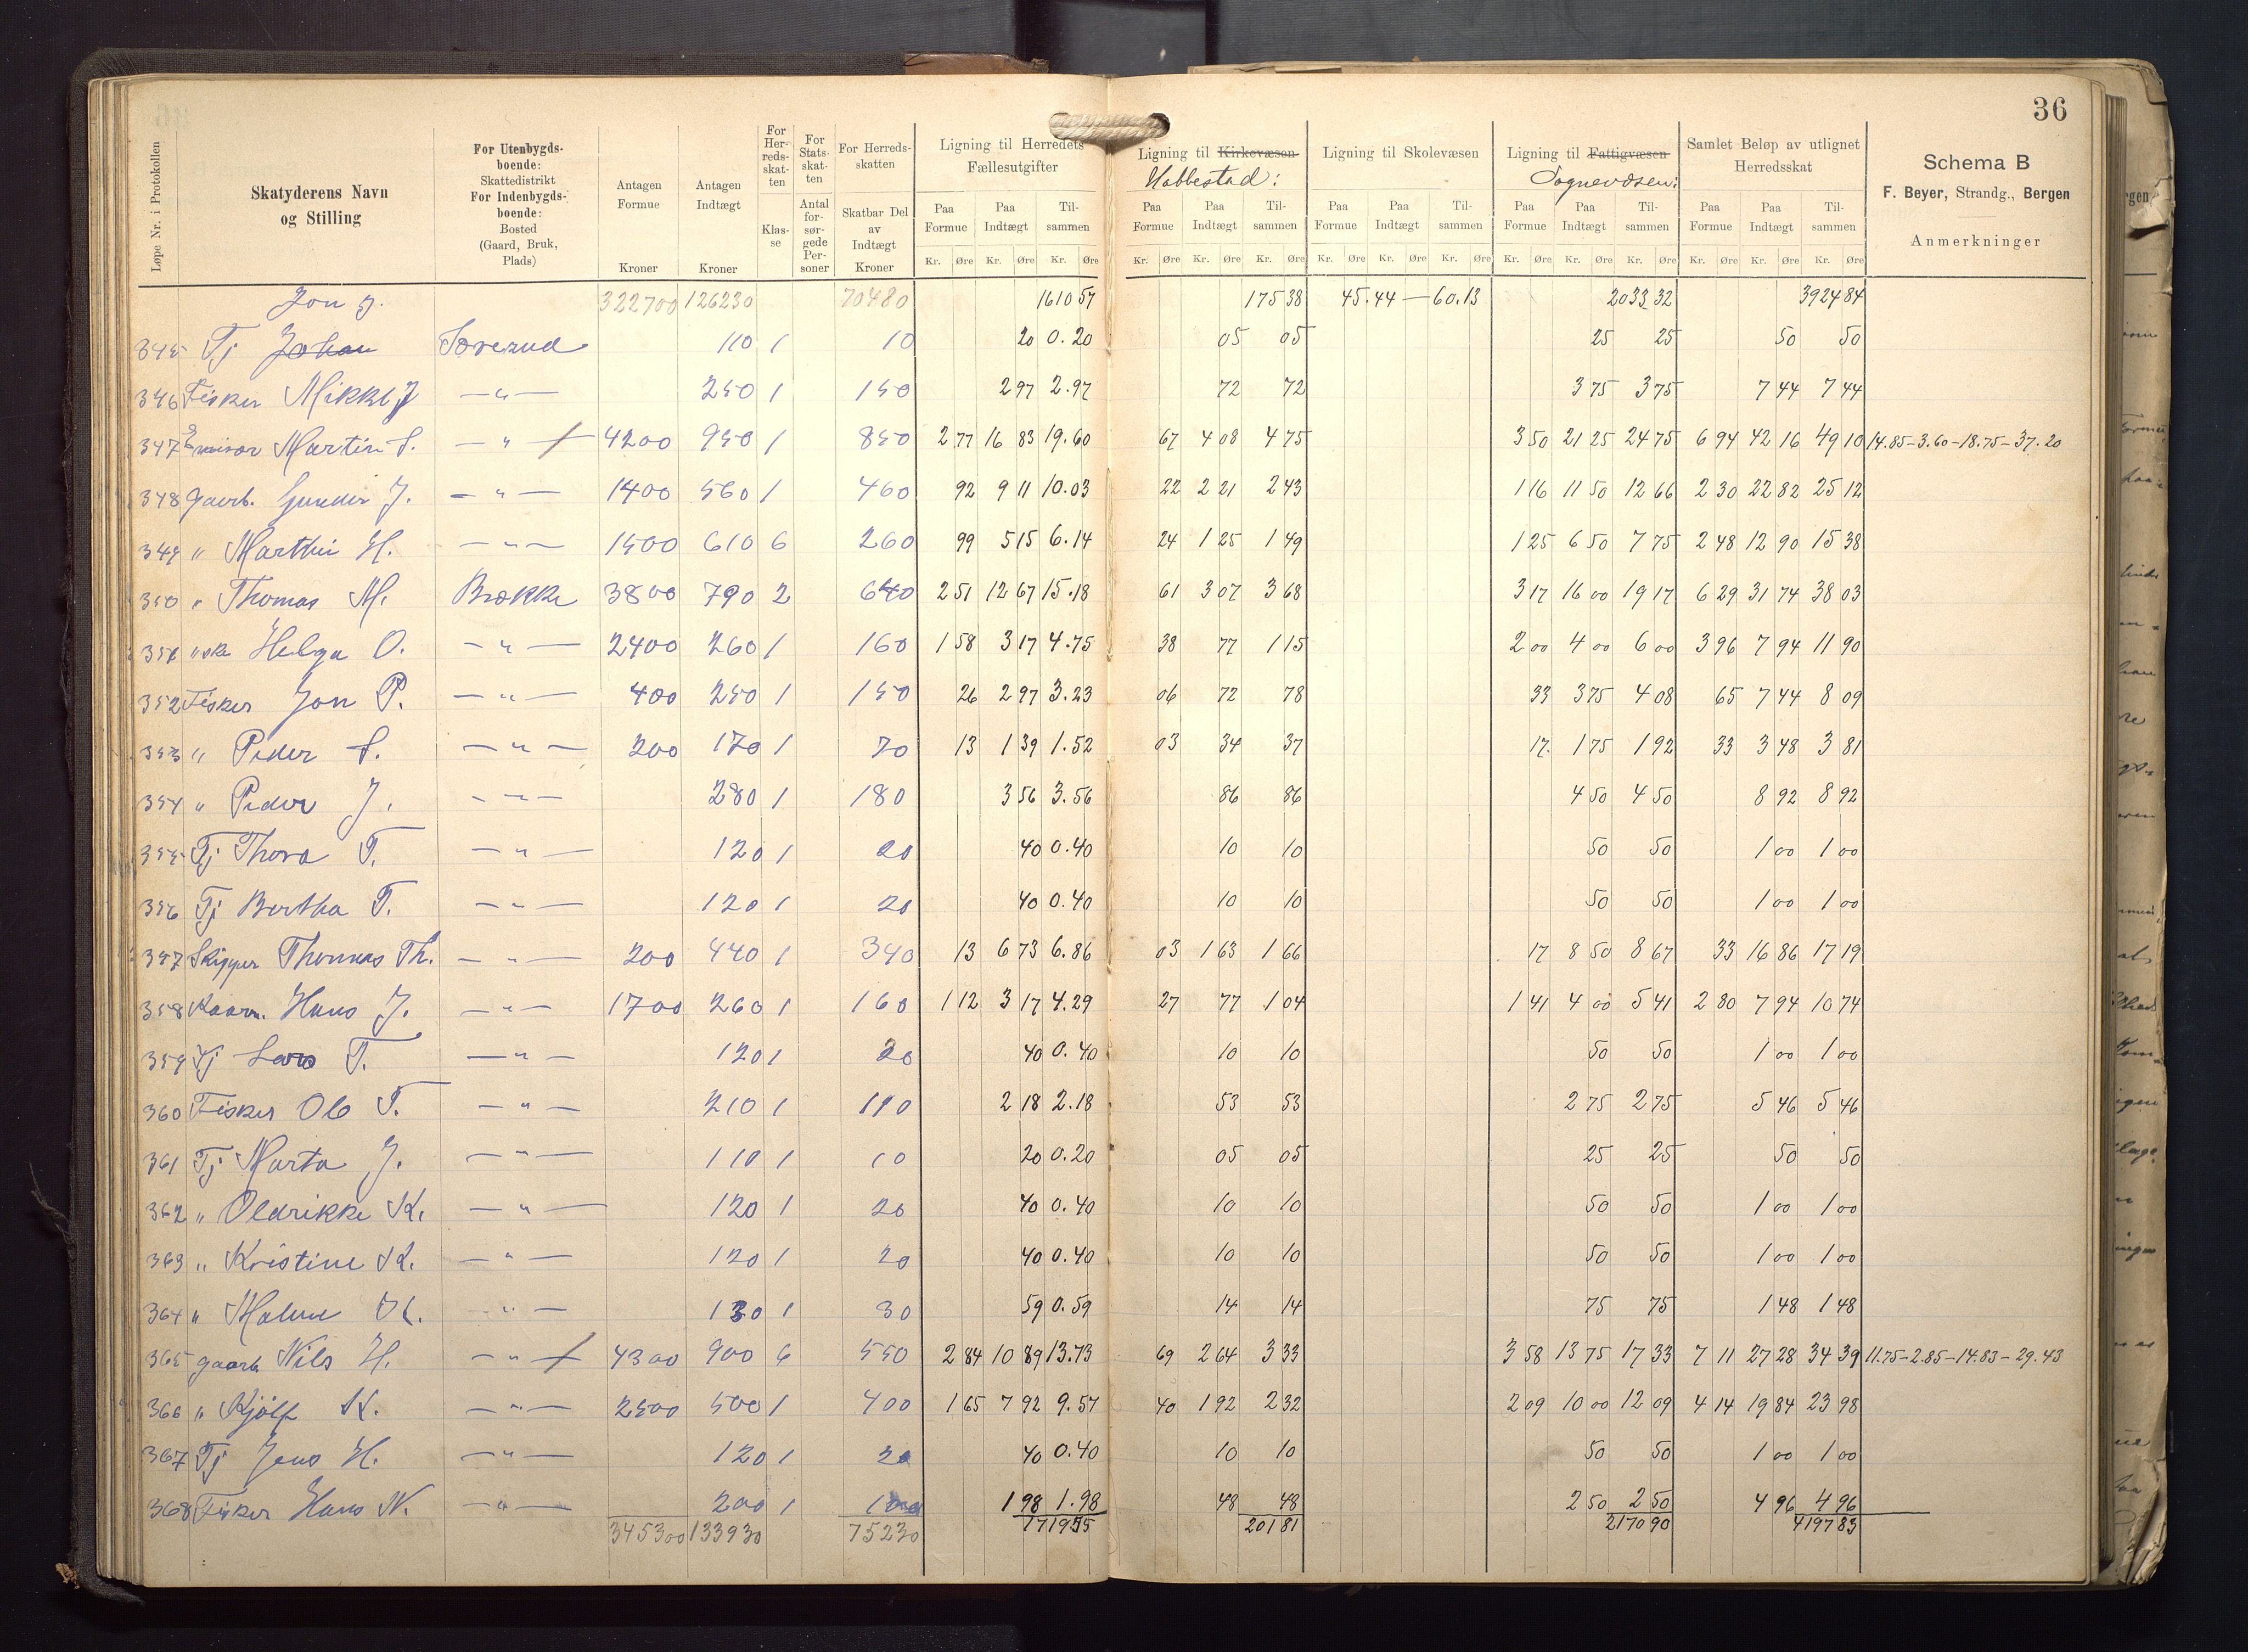 36
Løpe Nr. i Protokollen
Skatyderens Navn og Stilling
For Utenbygds-boende: Skattedistrikt For Indenbygds-boende: Bosted (Gaard, Bruk, Plads)
Antagen Formue Kroner
Antagen Indtægt Kroner
For Her-reds-skat-ten Klas-se
For Stats-skat-ten Antal for-sør-gede Per-soner
For Herreds-skatten Skatbar Del av Indtægt Kroner
Ligning til Herredets Fællesutgifter
Ligning til Kirkevæsen
Ligning til Skolevæsen
Ligning til Fattigvæsen
Sognevæsen:
Samlet Beløp av utlignet Herredsskat
Schema B
F. Beyer, Strandg., Bergen
Anmerkninger
Paa Formue Paa Indtægt Til-sammen Paa Formue Paa Indtægt Til-sammen Paa Formue Paa Indtægt Til-sammen Paa Formue Paa Indtægt Til-sammen Paa Formue Paa Indtægt Til-sammen
Kr. Øre Kr. Øre Kr. Øre Kr. Øre Kr. Øre Kr. Øre Kr. Øre Kr. Øre Kr. Øre Kr. Øre Kr. Øre Kr. Øre Kr. Øre Kr. Øre Kr. Øre
322700 126230 70480 1610 57 175 38 45.44 — 60.13 2033 32 3924 84
345 Tj Johan 110 1 10 20 0.20 05 05 25 25 50 50
346 Fisker Mikkel J — " — 250 1 150 2 97 2.97 72 72 3 75 3 75 7 44 7 44
347 Martin S. — " — 4200 950 1 850 2 77 16 83 19.60 67 4 08 4 75 3 50 21 25 24 75 6 94 42 16 49 10 14.85 – 3.60 – 18.75 – 37.20
348 Gaarb. Gunder J. — " — 1400 560 1 460 92 9 11 10.03 22 2 21 2 43 1 16 11 50 12 66 2 30 22 82 25 12
349 " Marthin H. — " — 1500 610 6 260 99 5 15 6.14 24 1 25 1 49 1 25 6 50 7 75 2 48 12 90 15 38
350 " Thomas M. Brække 3800 790 2 640 2 51 12 67 15.18 61 3 07 3 68 3 17 16 00 19 17 6 29 31 74 38 03
351 " ske Helga O. — " — 2400 260 1 160 1 58 3 17 4.75 38 77 1 15 2 00 4 00 6 00 3 96 7 94 11 90
352 Fisker Jon P. — " — 400 250 1 150 26 2 97 3.23 06 72 78 33 3 75 4 08 65 7 44 8 09
353 " Peder S. — " — 200 170 1 70 13 1 39 1.52 03 34 37 17 1 75 1 92 33 3 48 3 81
354 " Peder J. — " — 280 1 180 3 56 3.56 86 86 4 50 4 50 8 92 8 92
355 Tj Thora T. — " — 120 1 20 40 0.40 10 10 50 50 1 00 1 00
356 Tj Bertha T. — " — 120 1 20 40 0.40 10 10 50 50 1 00 1 00
357 Skipper Thomas Th. — " — 200 440 1 340 13 6 73 6.86 03 1 63 1 66 17 8 50 8 67 33 16 86 17 19
358 Hans J. — " — 1700 260 1 160 1 12 3 17 4.29 27 77 1 04 1 41 4 00 5 41 2 80 7 94 10 74
359 Tj Lars T. — " — 120 1 20 40 0.40 10 10 50 50 1 00 1 00
360 Fisker Ole T. — " — 210 1 110 2 18 2.18 53 53 2 75 2 75 5 46 5 46
361 Tj Marta J. — " — 110 1 10 20 0.20 05 05 25 25 50 50
362 " Oldrikke K. — " — 120 1 20 40 0.40 10 10 50 50 1 00 1 00
363 " Kristine K. — " — 120 1 20 40 0.40 10 10 50 50 1 00 1 00
364 " Malene K. — " — 130 1 30 59 0.59 14 14 75 75 1 48 1 48
365 gaarb Nils H. — " — 4300 900 6 550 2 84 10 89 13.73 69 2 64 3 33 3 58 13 75 17 33 7 11 27 28 34 39 11.75 – 2.85 – 14.83 – 29.43
366 " Kjölf K. — " — 2500 500 1 400 1 65 7 92 9.57 40 1 92 2 32 2 09 10 00 12 09 4 14 19 84 23 98
367 Tj Jens H. — " — 120 1 20 40 0.40 10 10 50 50 1 00 1 00
368 Fisker Hans N. — " — 200 1 100 1 98 1.98 48 48 2 50 2 50 4 96 4 96
345300 133930 75230 1719 55 201 81 2170 90 4197 83